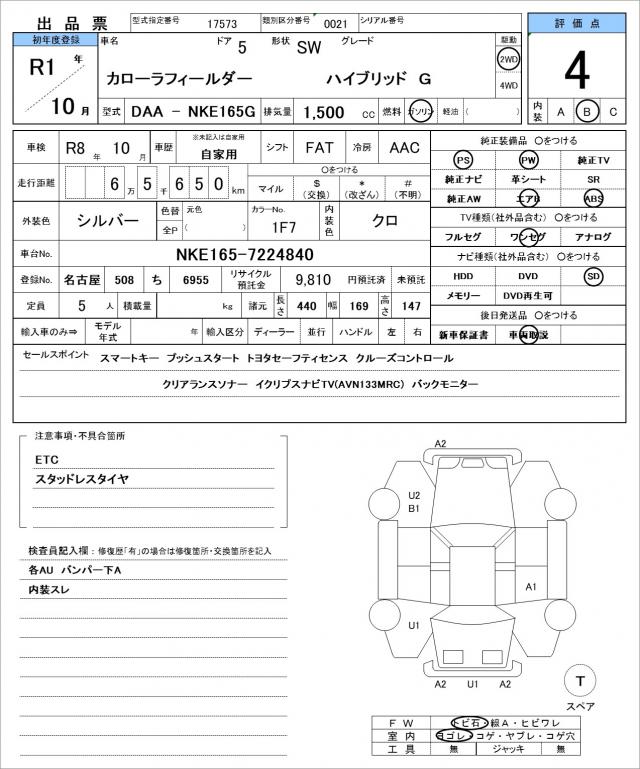 出品票 型式指定番号 17573 類別区分番号 0021 シリアル番号
評価点
初年度登録 車名 ドア 5 形状 SW グレード 駆動
R1 年 カローラフィールダー ハイブリッド G 2WD 4
4WD
10 月 型式 DAA - NKE165G 排気量 1,500 cc 燃料 ガソリン 軽油 ( ) 内装 A B C
車検 R8 年 10 月 車歴 ※未記入は自家用 自家用 シフト FAT 冷房 AAC
純正装備品 〇をつける
走行距離 6 万 5 千 6 5 0 km 〇をつける マイル $ (交換) * (改ざん) # (不明)
PS PW 純正TV
純正ナビ 革シート SR
純正AW エアB ABS
外装色 シルバー 色替 元色 全P ( ) カラーNo. 1F7 内装色 クロ
TV種類(社外品含む) 〇をつける
フルセグ ワンセグ アナログ
車台No. NKE165-7224840
ナビ種類(社外品含む) 〇をつける
登録No. 名古屋 508 ち 6955 リサイクル預託金 9,810 円預託済 未預託
HDD DVD SD
定員 5 人 積載量 kg 諸元 長さ 440 幅 169 高さ 147
メモリー DVD再生可
後日発送品 〇をつける
輸入車のみ⇒ モデル年式 年 輸入区分 ディーラー 並行 ハンドル 左 右
新車保証書 車両取説
セールスポイント スマートキー プッシュスタート トヨタセーフティセンス クルーズコントロール
クリアランスソナー イクリプスナビTV(AVN133MRC) バックモニター
注意事項・不具合箇所
ETC
スタッドレスタイヤ
検査員記入欄:修復歴「有」の場合は修復箇所・交換箇所を記入
各AU バンパー下A
内装スレ
A2
U2
B1
A1
U1
A2 U1 A2
T
スペア
FW トビ石・線A・ヒビワレ
室内 ヨゴレ・コゲ・ヤブレ・コゲ穴
工具 無 ジャッキ 無